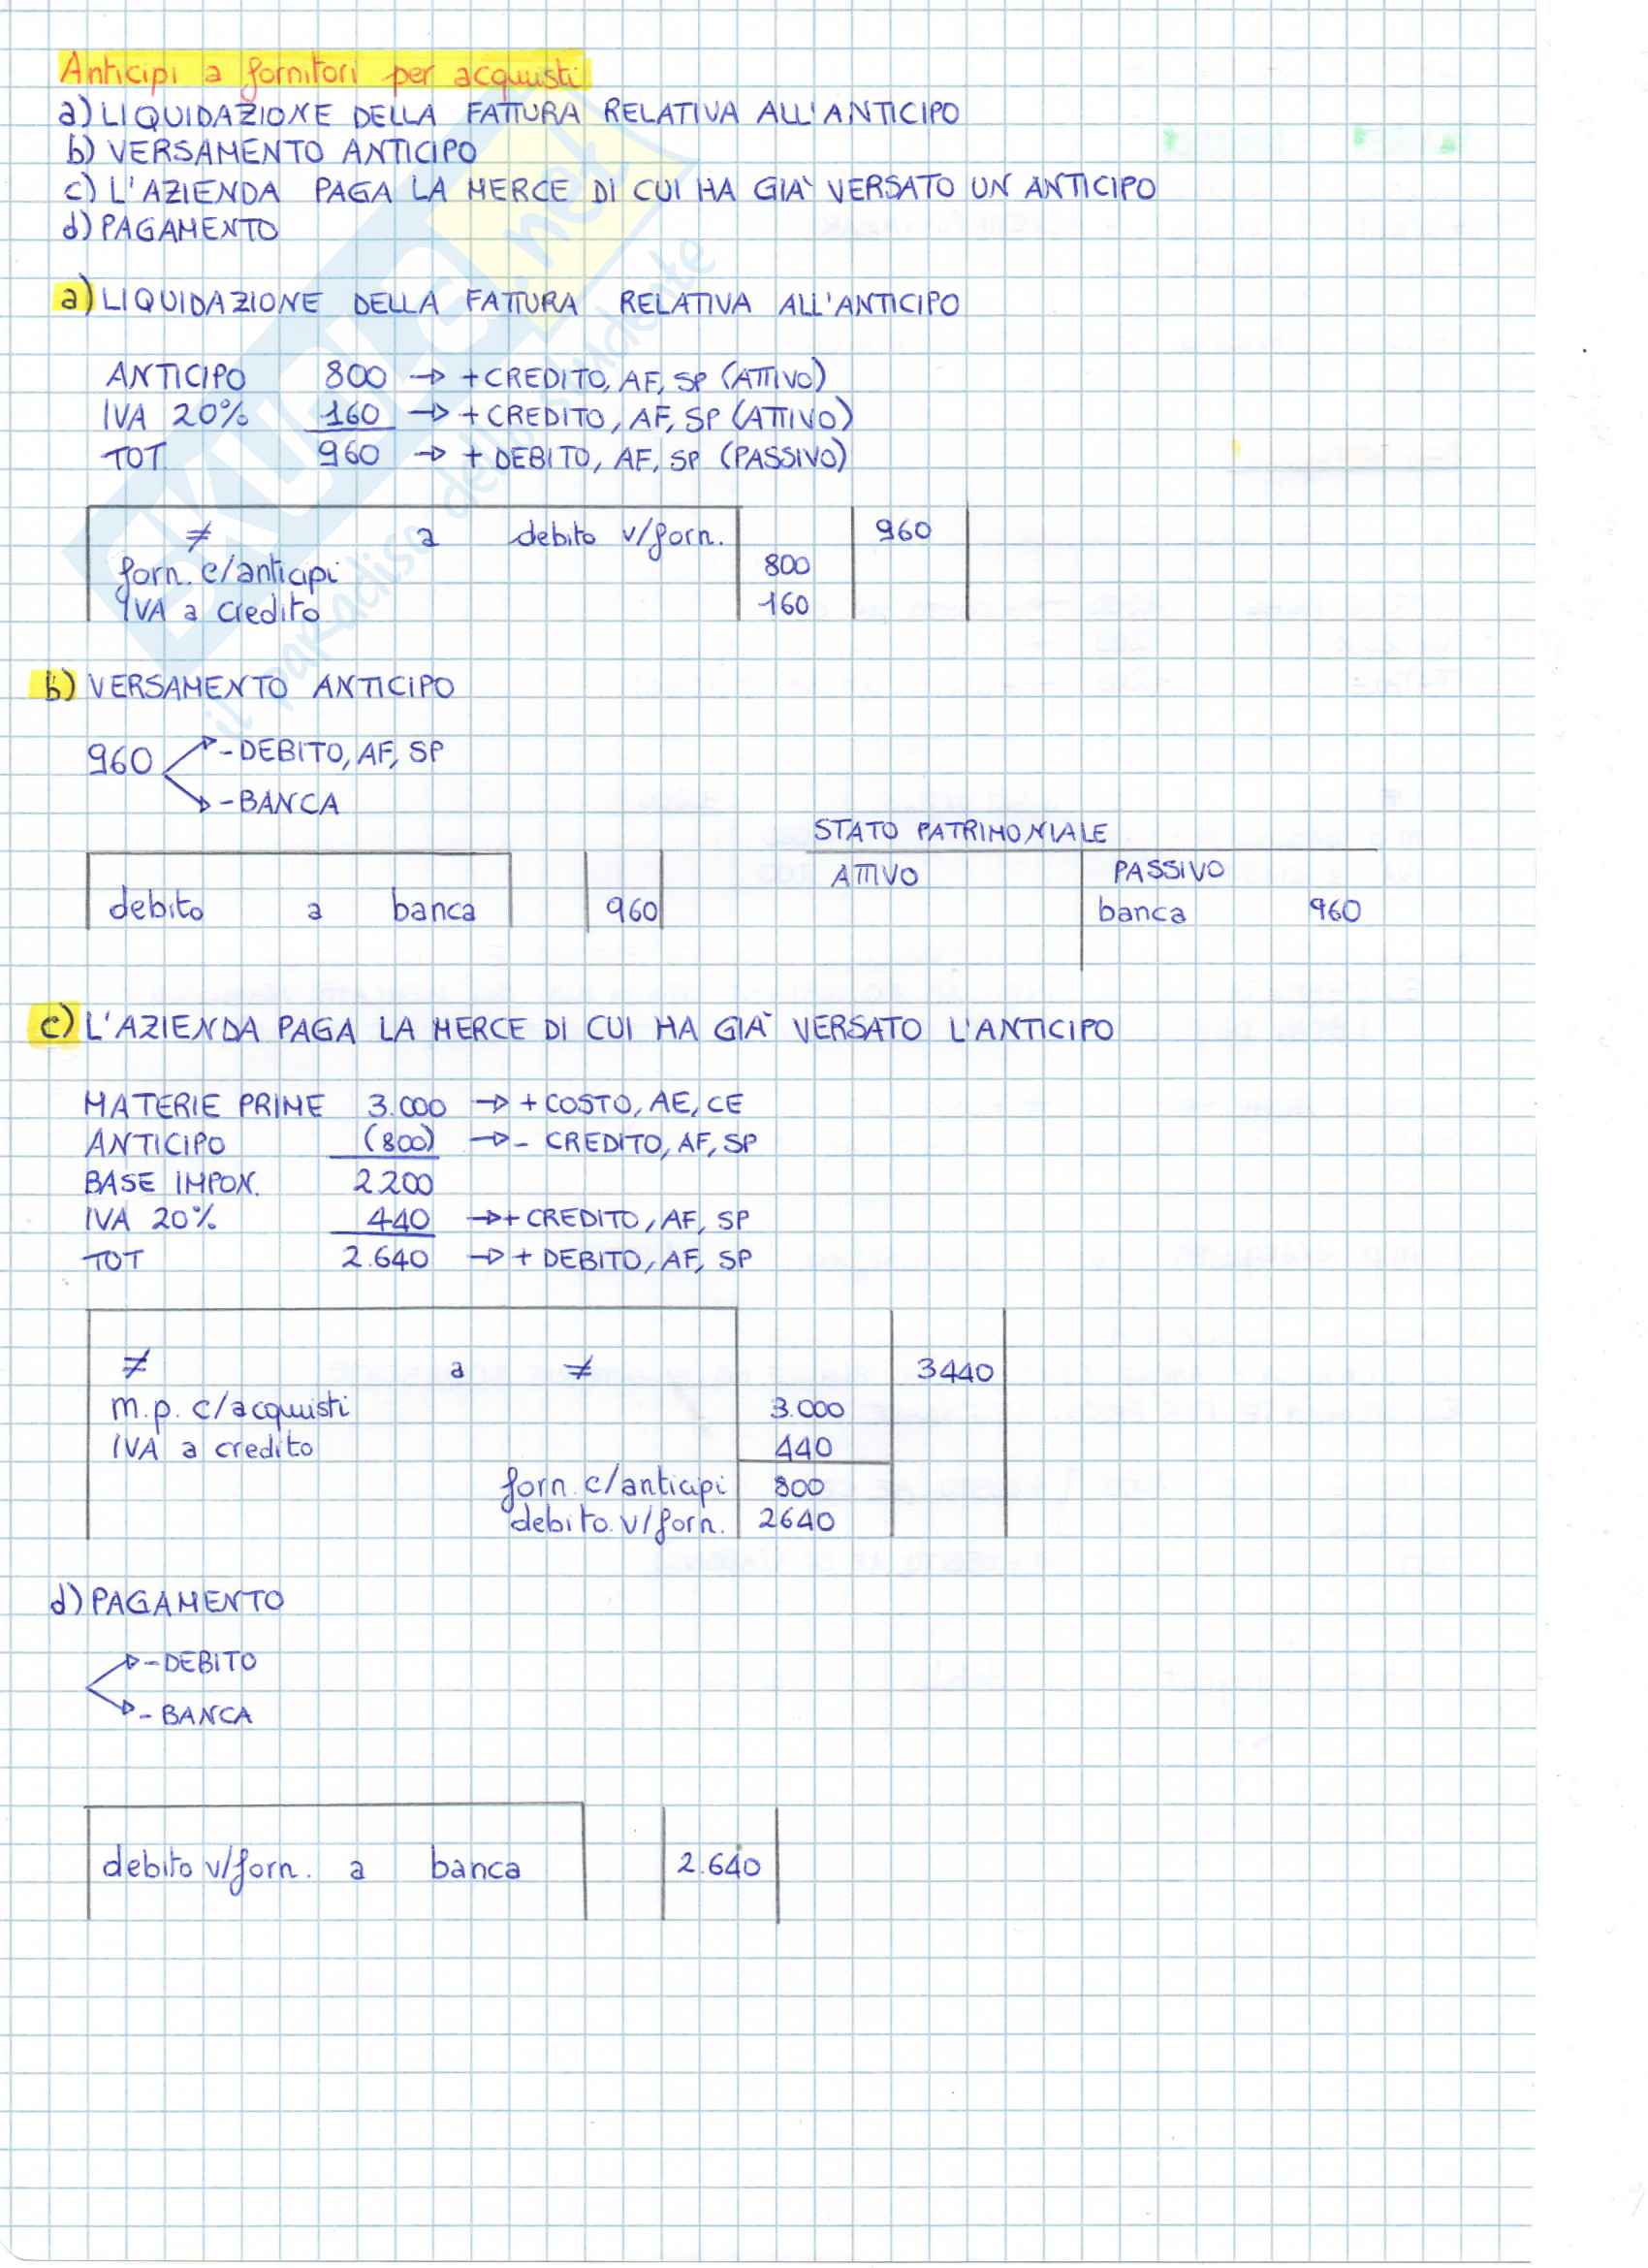 Anticipi a fornitori per acquisti
a) LIQUIDAZIONE DELLA FATTURA RELATIVA ALL'ANTICIPO
b) VERSAMENTO ANTICIPO
c) L'AZIENDA PAGA LA MERCE DI CUI HA GIÀ VERSATO UN ANTICIPO
d) PAGAMENTO
a) LIQUIDAZIONE DELLA FATTURA RELATIVA ALL'ANTICIPO
ANTICIPO 800 → + CREDITO, AF, SP (ATTIVO)
IVA 20% 160 → + CREDITO, AF, SP (ATTIVO)
TOT 960 → + DEBITO, AF, SP (PASSIVO)
≠ a debito v/forn. 960
forn. c/anticipi 800
IVA a credito 160
b) VERSAMENTO ANTICIPO
960 → - DEBITO, AF, SP
→ - BANCA
STATO PATRIMONIALE
ATTIVO PASSIVO
banca 960
debito a banca 960
c) L'AZIENDA PAGA LA MERCE DI CUI HA GIÀ VERSATO L'ANTICIPO
MATERIE PRIME 3.000 → + COSTO, AE, CE
ANTICIPO (800) → - CREDITO, AF, SP
BASE IMPON. 2200
IVA 20% 440 → + CREDITO, AF, SP
TOT 2.640 → + DEBITO, AF, SP
≠ a ≠ 3440
m.p. c/acquisti 3.000
IVA a credito 440
forn. c/anticipi 800
debito v/forn. 2640
d) PAGAMENTO
→ - DEBITO
→ - BANCA
debito v/forn. a banca 2.640
SKUOLA.net
il paradiso dello studente